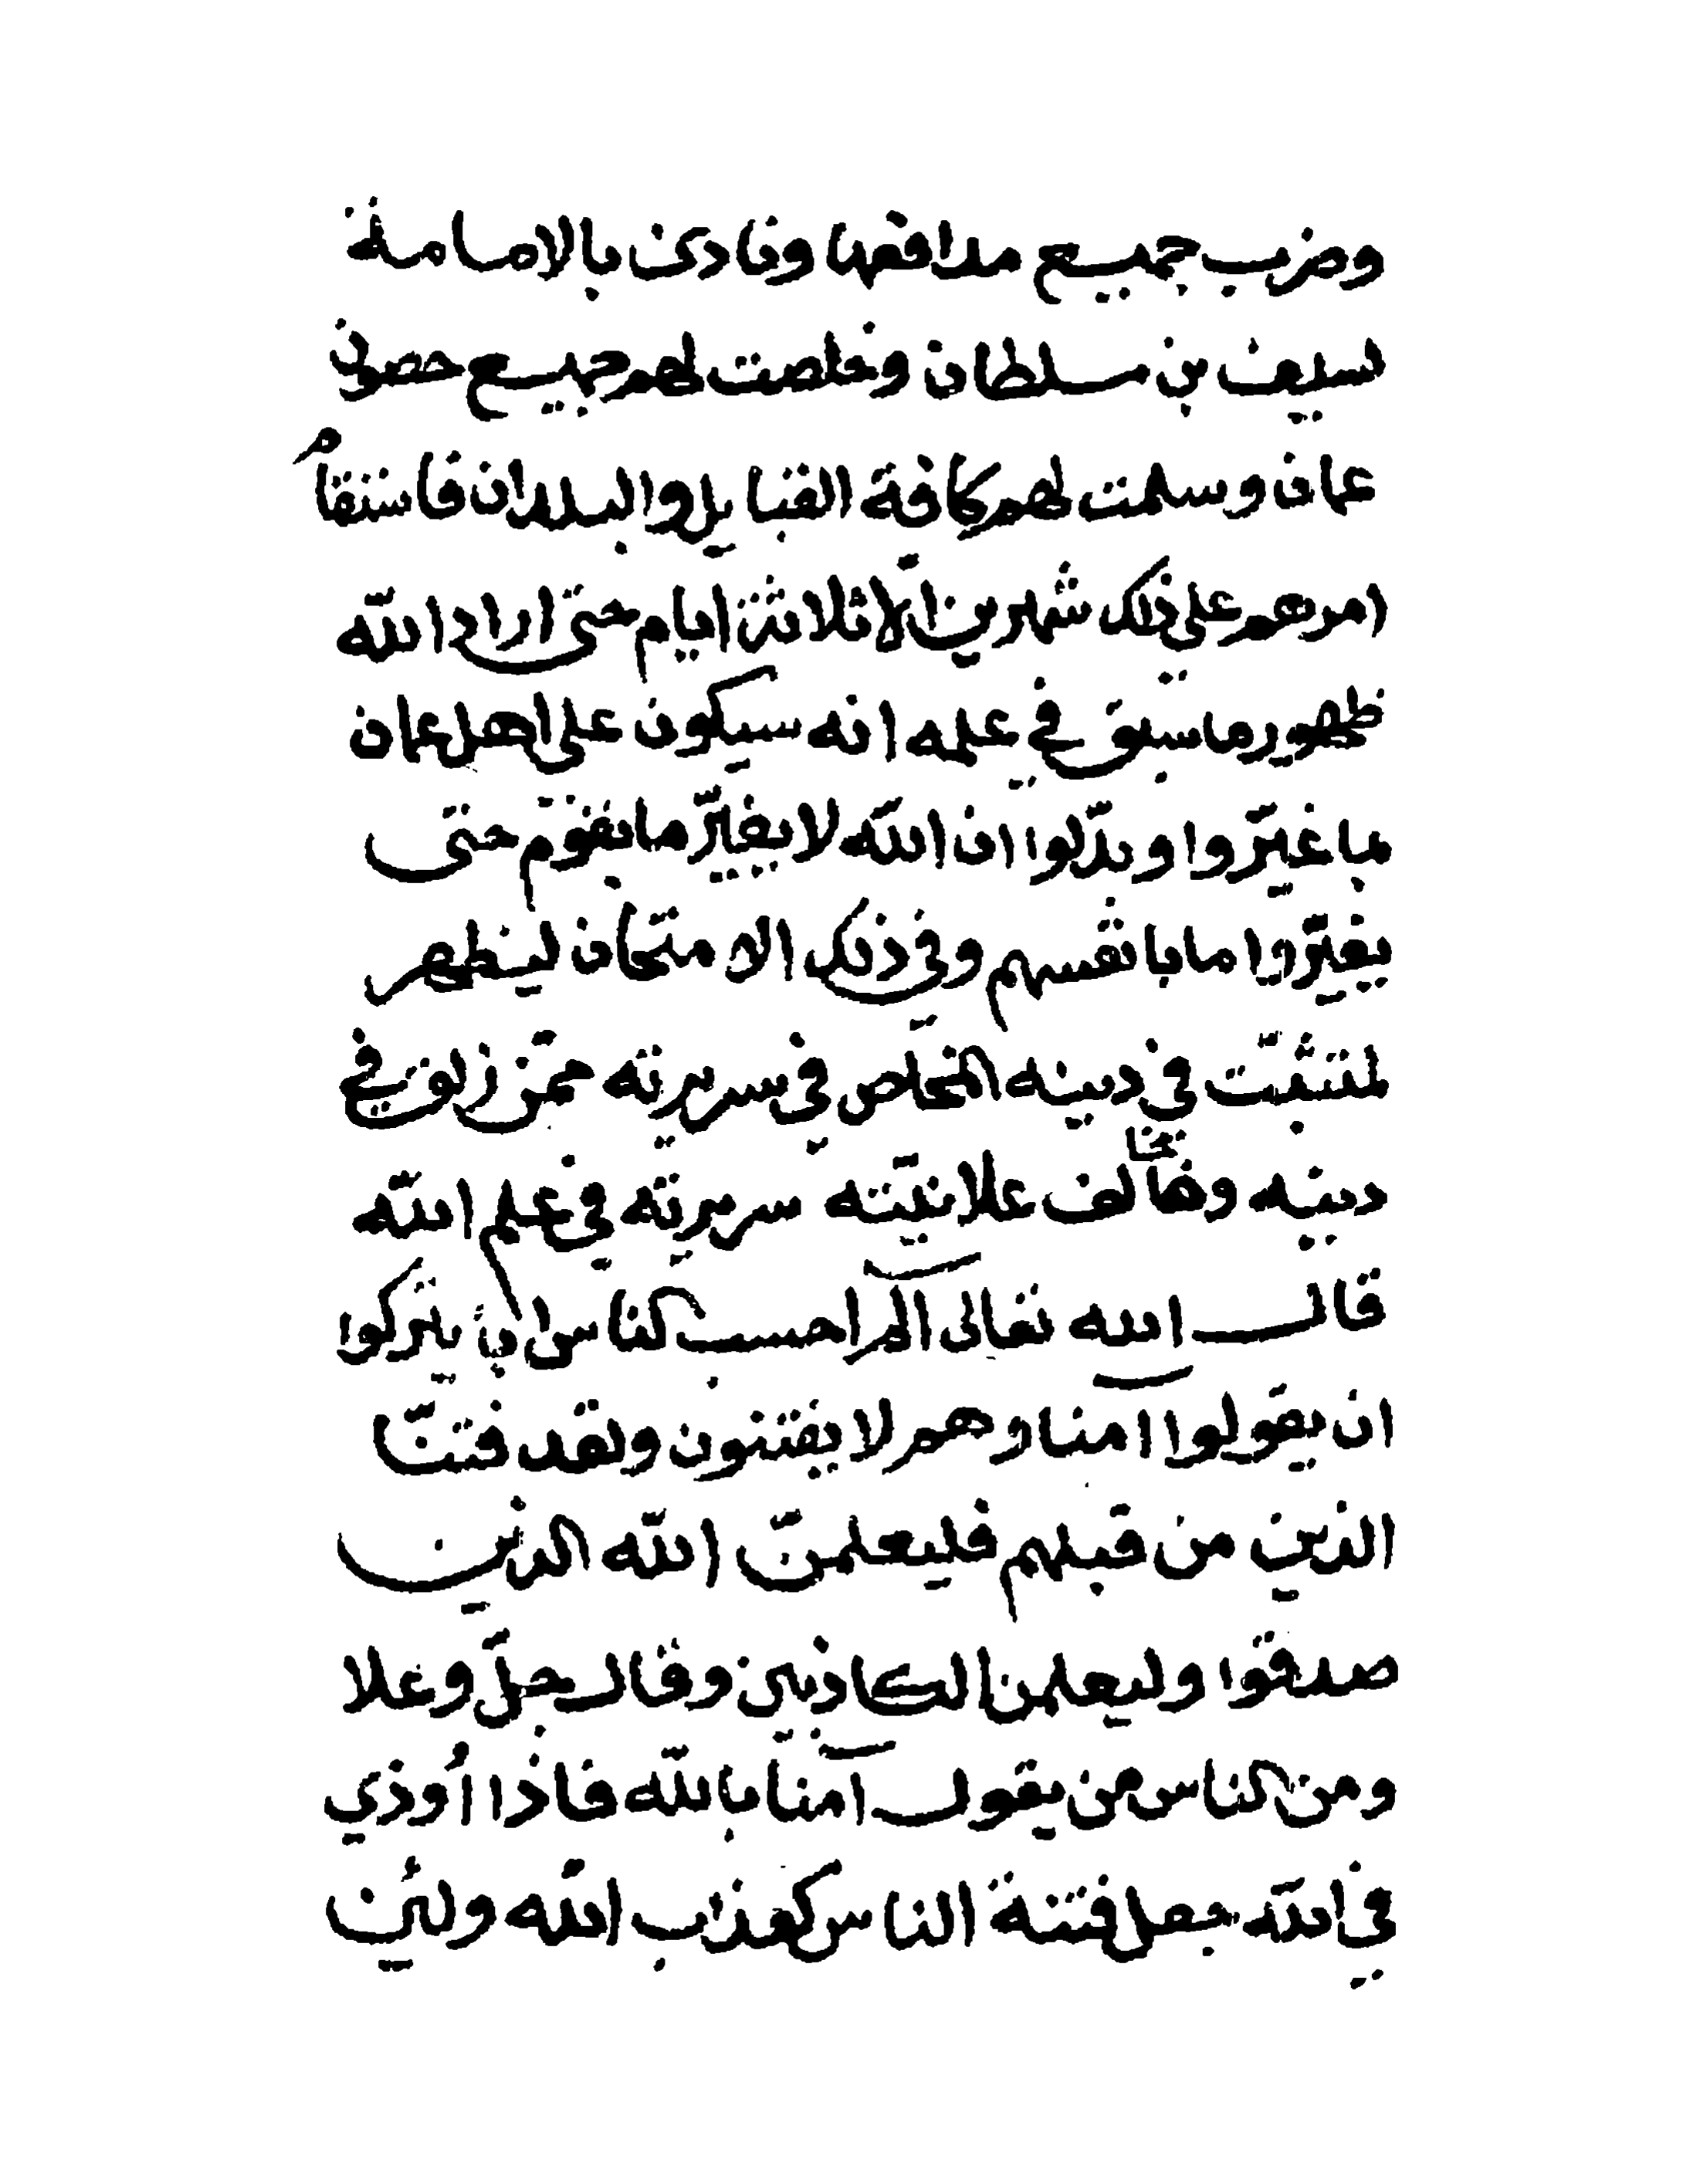 وضرب جميع مدافعها ونادى بالامامة
لسيف بن سلطان وخلصت لهم جميع حصون
عمان وسلمت لهم كافة القبايل والبلدان فاستقام
امرهم على ذلك شهرين الا ثلاثة ايام حتى اراد الله
ظهور ما سبق في علمه انه سيكون على اهل عمان
بما غيّروا وبدّلوا ان الله لا يغيّر ما بقوم حتى
يغيّروا ما بانفسهم وفي ذلك الامتحان ليظهر
المتثبّت في دينه المخلص في سريرته ممّن زلق في
دينه وخالف علانيّته سريرته في علم الله
قال الله تعالى الم احسب الناس ان يتركوا
ان يقولوا امنا وهم لا يفتنون ولقد فتنّا
الذين من قبلهم فليعلمنّ الله الذين
صدقوا وليعلمن الكاذبين وقال جلّ وعلا
ومن الناس من يقول آمنا بالله فاذا أوذي
في الله جعل فتنة الناس كعذاب الله ولئن